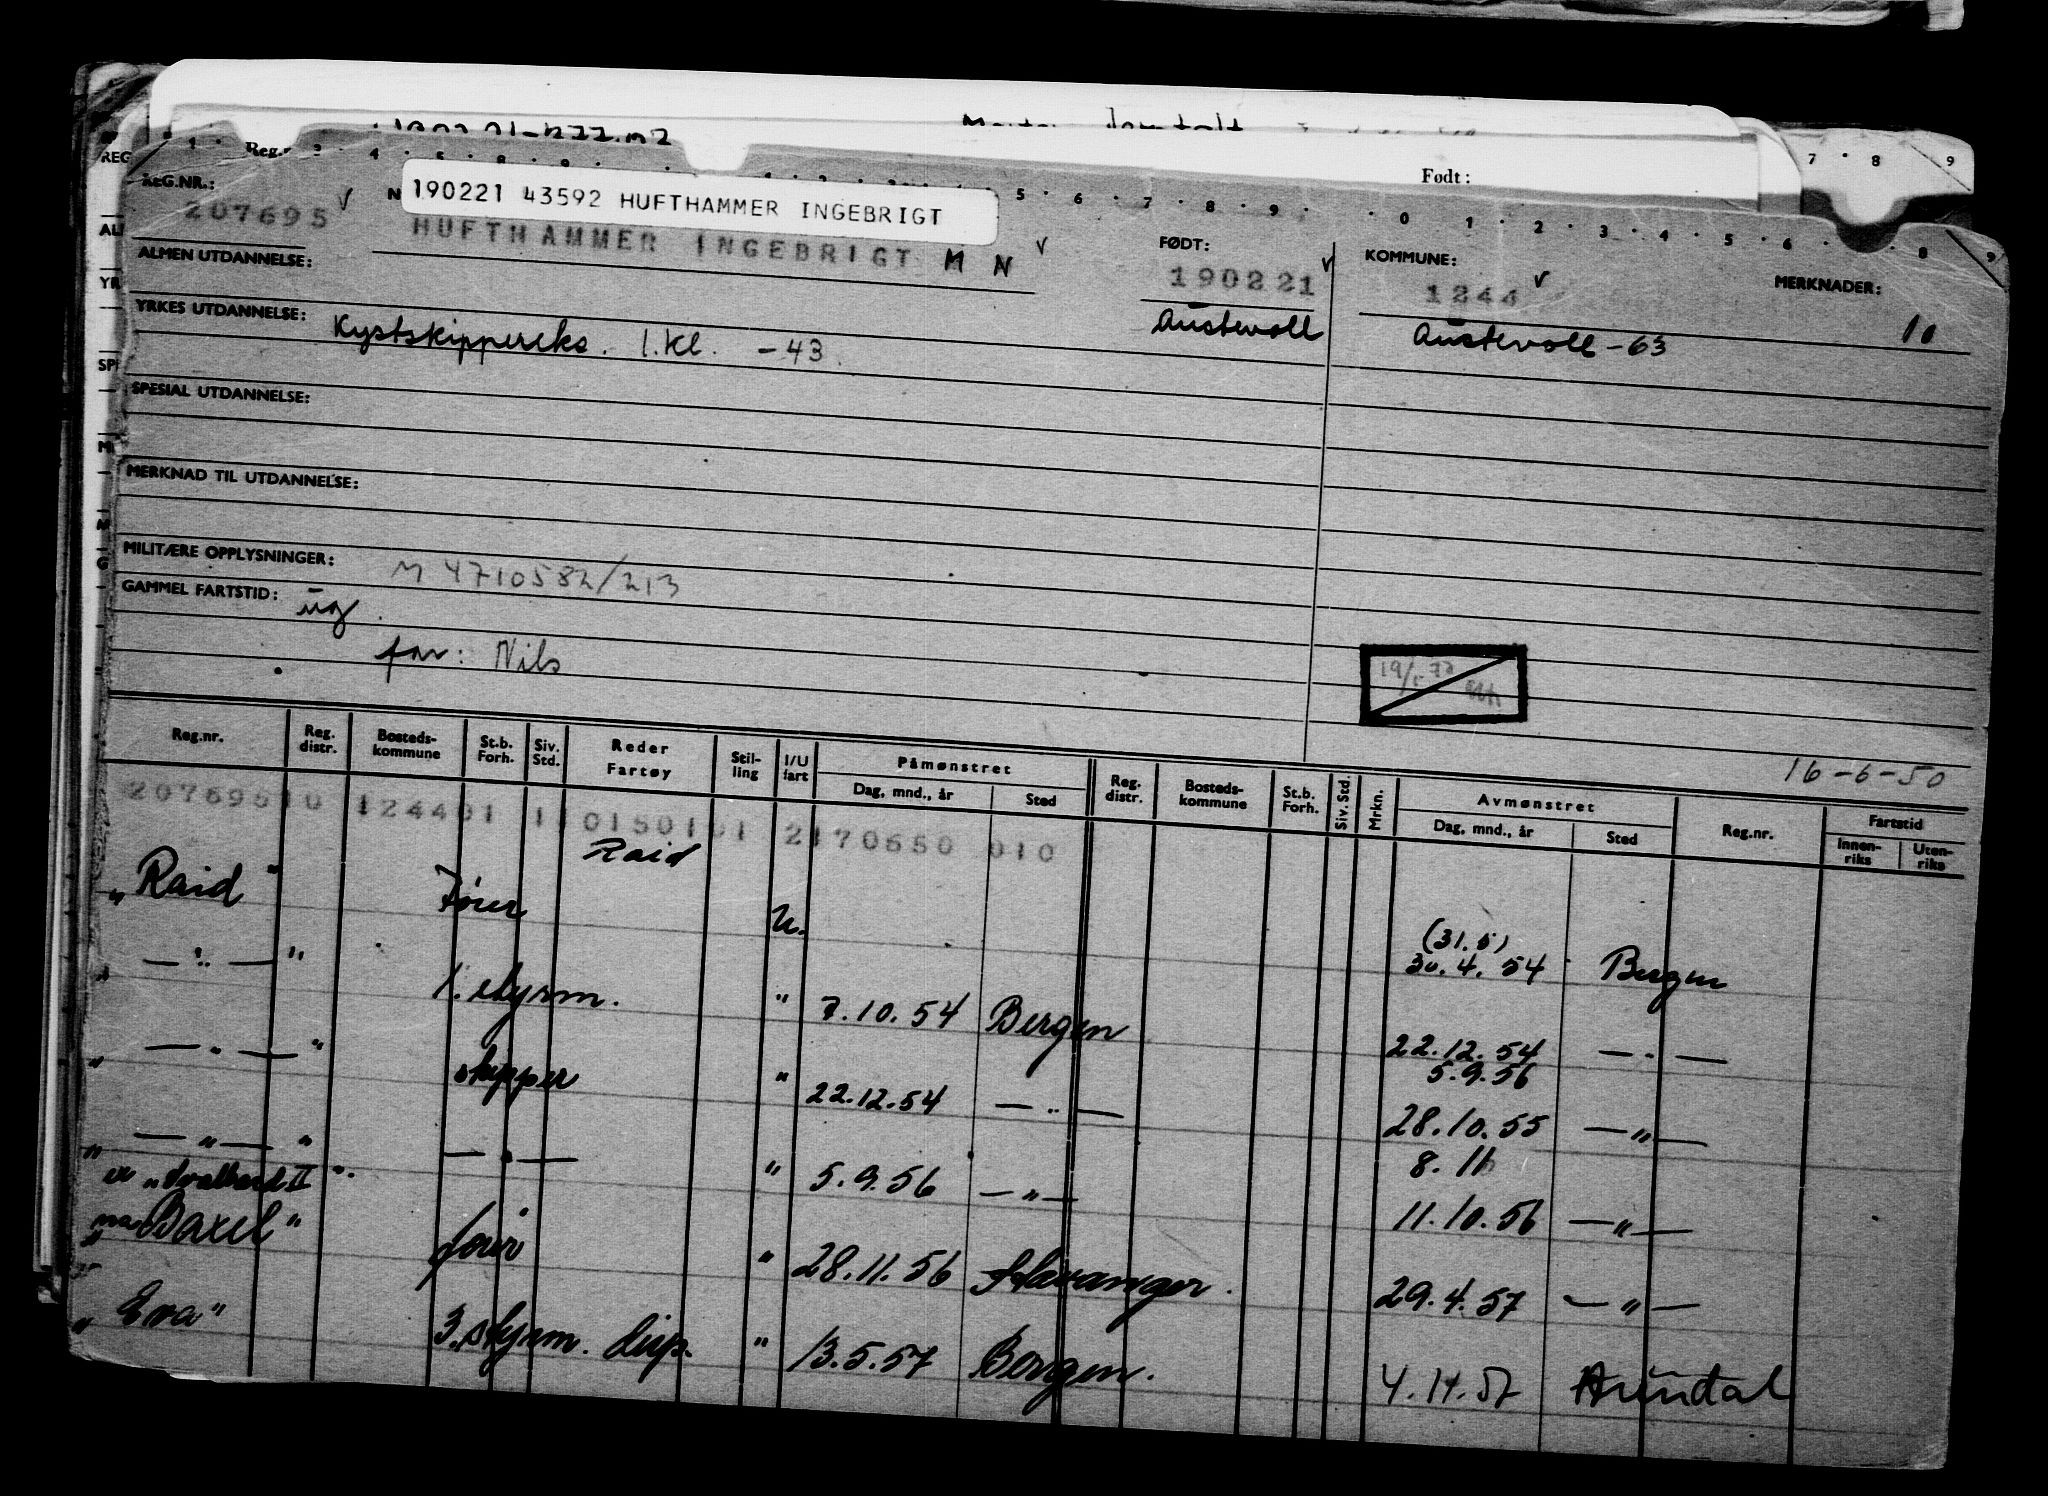 7 · 8 9
REG
Reg.
Født:
REG.NR.:
190221 43592 HUFTHAMMER INGEBRIGT
207695
HUFTHAMMER INGEBRIGT M N
FØDT:
190221
KOMMUNE:
1244
MERKNADER:
ALMEN UTDANNELSE:
Austevoll
Austevoll - 63
10
YRKES UTDANNELSE:
Kystskippereks. 1. kl. - 43.
SPESIAL UTDANNELSE:
MERKNAD TIL UTDANNELSE:
MILITÆRE OPPLYSNINGER:
M 4710582/213
GAMMEL FARTSTID:
ug.
far: Nils
16-6-50
Reg.nr. Reg. distr. Bosteds-kommune St.b. Forh. Siv. Std. Reder Fartøy Stil-ling I/U fart Påmønstret Dag, mnd., år Sted Reg. distr. Bosteds-kommune St.b. Forh. Siv. Std. Mrkn. Avmønstret Dag, mnd., år Sted Reg.nr. Fartstid Innen-riks Uten-riks
207695 10 124401 1 10150101 2170650 010
Raid
"Raid" Fører U. (31.5) 30.4.54 Bergen
" — " — " 1. styrm. " 7.10.54 Bergen 22.12.54 — " —
5.9.56
" — " — " skipper " 22.12.54 — " — 28.10.55 — " —
8.11
" — " — " — " — " 5.9.56 — " — 11.10.56 — " —
ex "Svalbard II".
"Baxel" fører " 28.11.56 Stavanger. 29.4.57 — " —
"Eva" 3. styrm. disp. " 13.5.57 Bergen. 4.11.57 Arendal